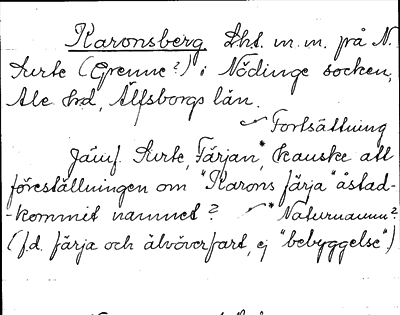 Karonsberg lht. m.m. på N.
Surte (Grenne?) i Nödinge socken,
Ale hd, Älfsborgs län.
Fortsättning
Jämf. Surte, Färjan*, kanske att
föreställningen om "Karons färja" åstad-
-kommit namnet? * Naturnamn?
(f.d. färja och älvöverfart, ej "bebyggelse")